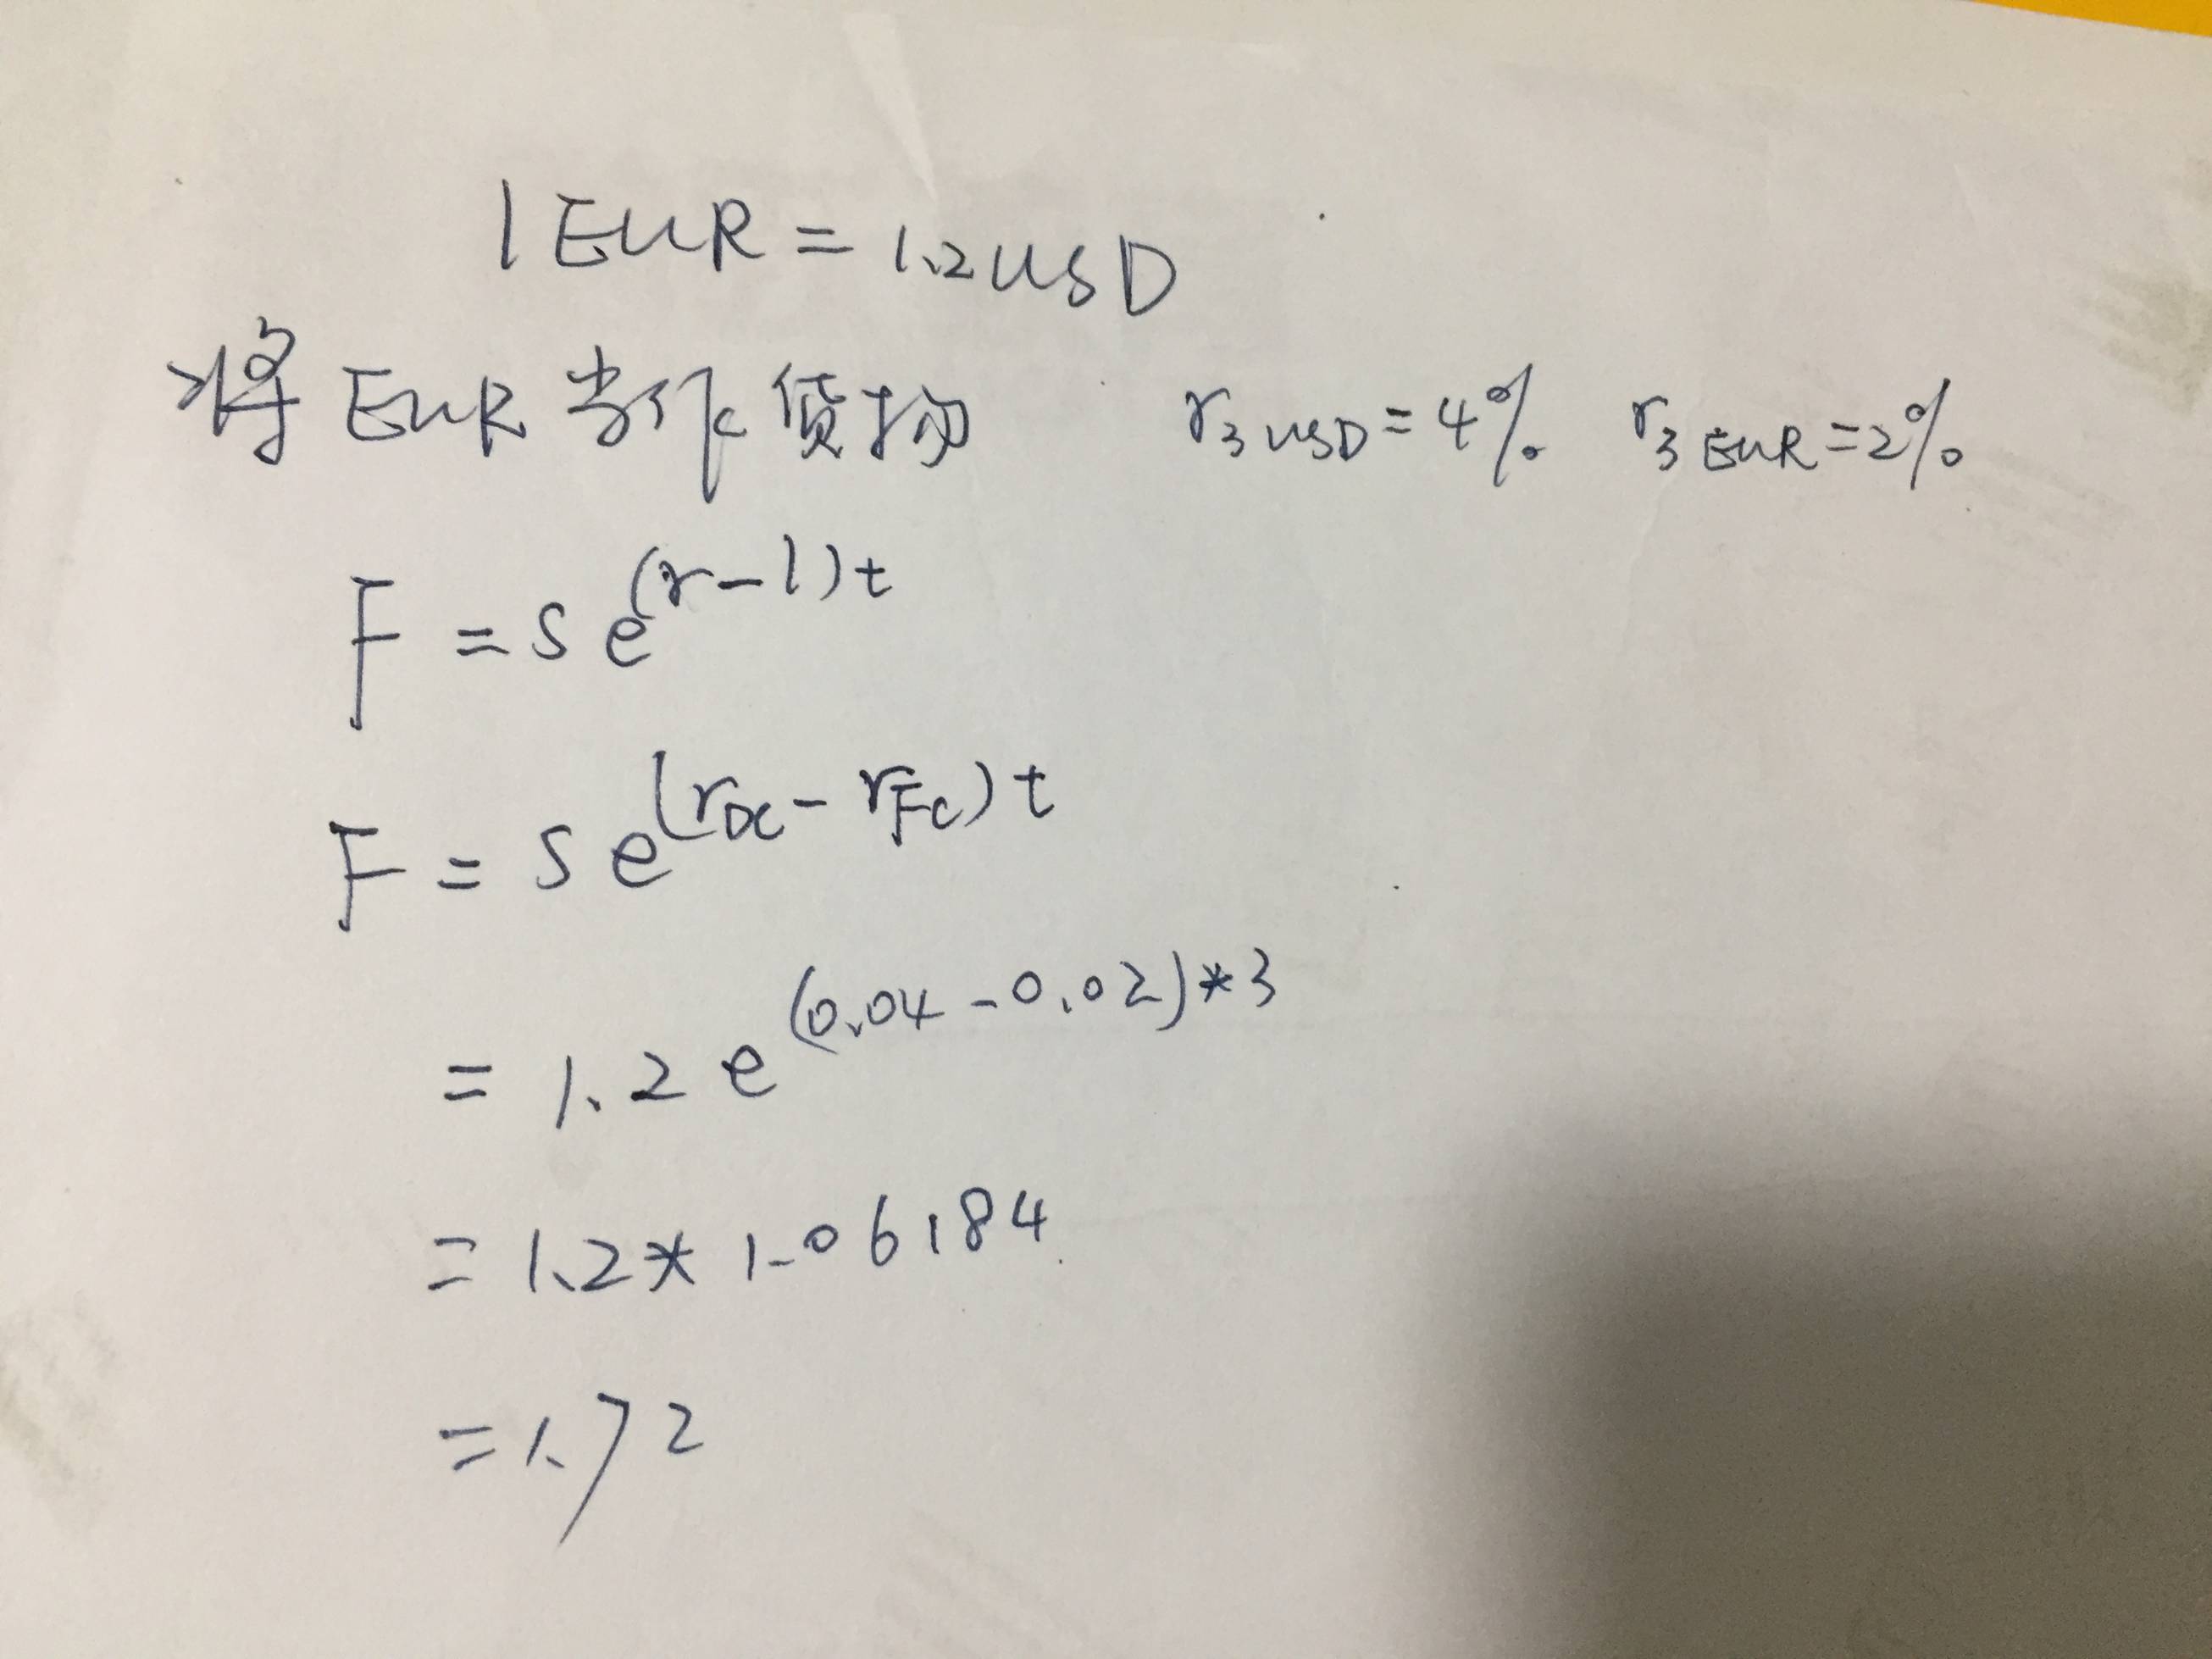 1 EUR = 1.2 USD
将 EUR 当作货物 r3 USD = 4% r3 EUR = 2%
F = S e^(r-l)t
F = S e^(rDC - rFC)t
= 1.2 e^(0.04 - 0.02)*3
= 1.2 * 1.06184
= 1.72